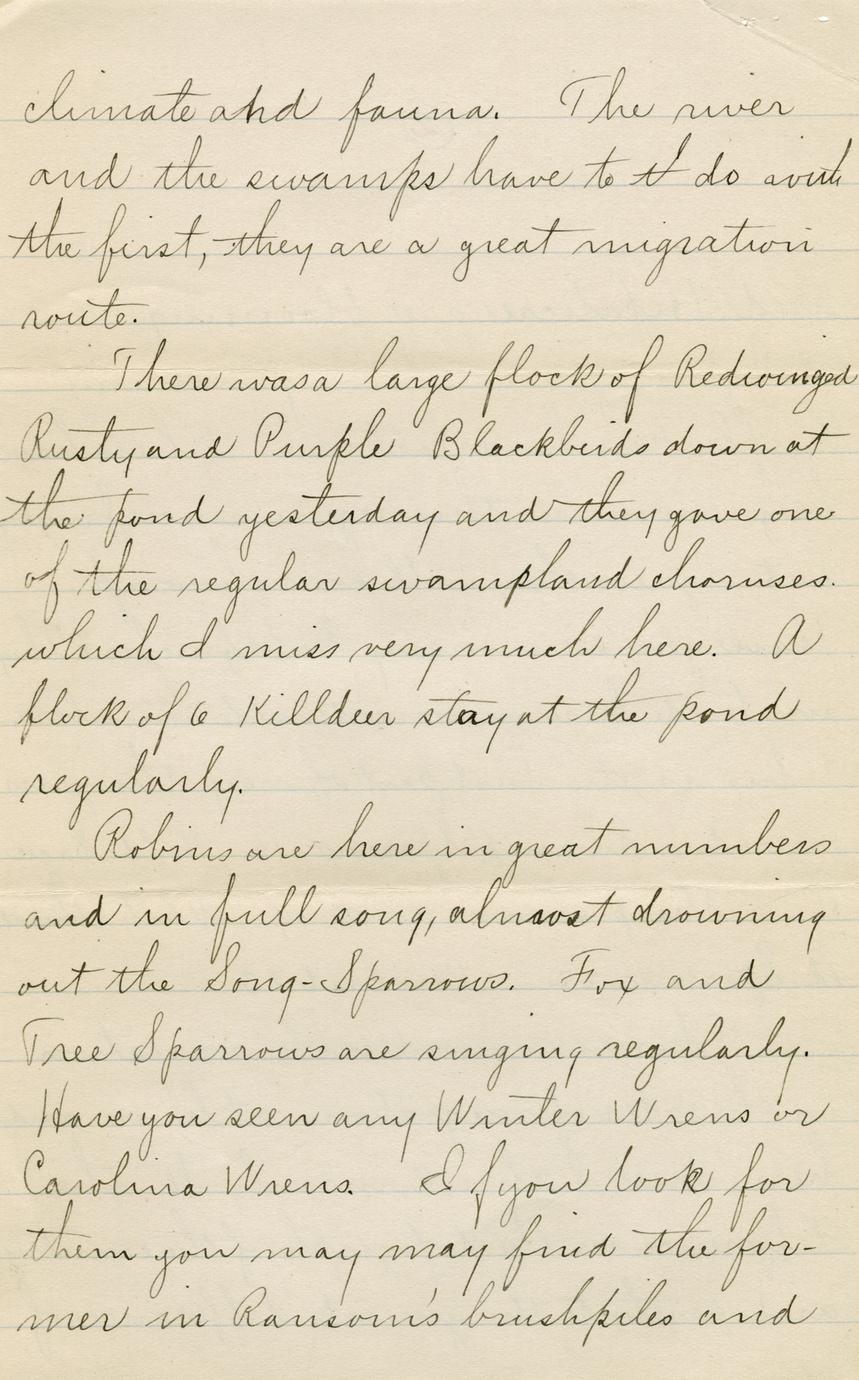 climate and fauna. The river
and the swamps have to do with
the first, they are a great migration
route.
There was a large flock of Redwinged
Rusty and Purple Blackbirds down at
the pond yesterday and they gave one
of the regular swampland choruses.
which I miss very much here. A
flock of 6 Killdeer stay at the pond
regularly.
Robins are here in great numbers
and in full song, almost drowning
out the Song-Sparrows. Fox and
Tree Sparrows are singing regularly.
Have you seen any Winter Wrens or
Carolina Wrens. If you look for
them you may may find the for-
mer in Ransom's brushpiles and